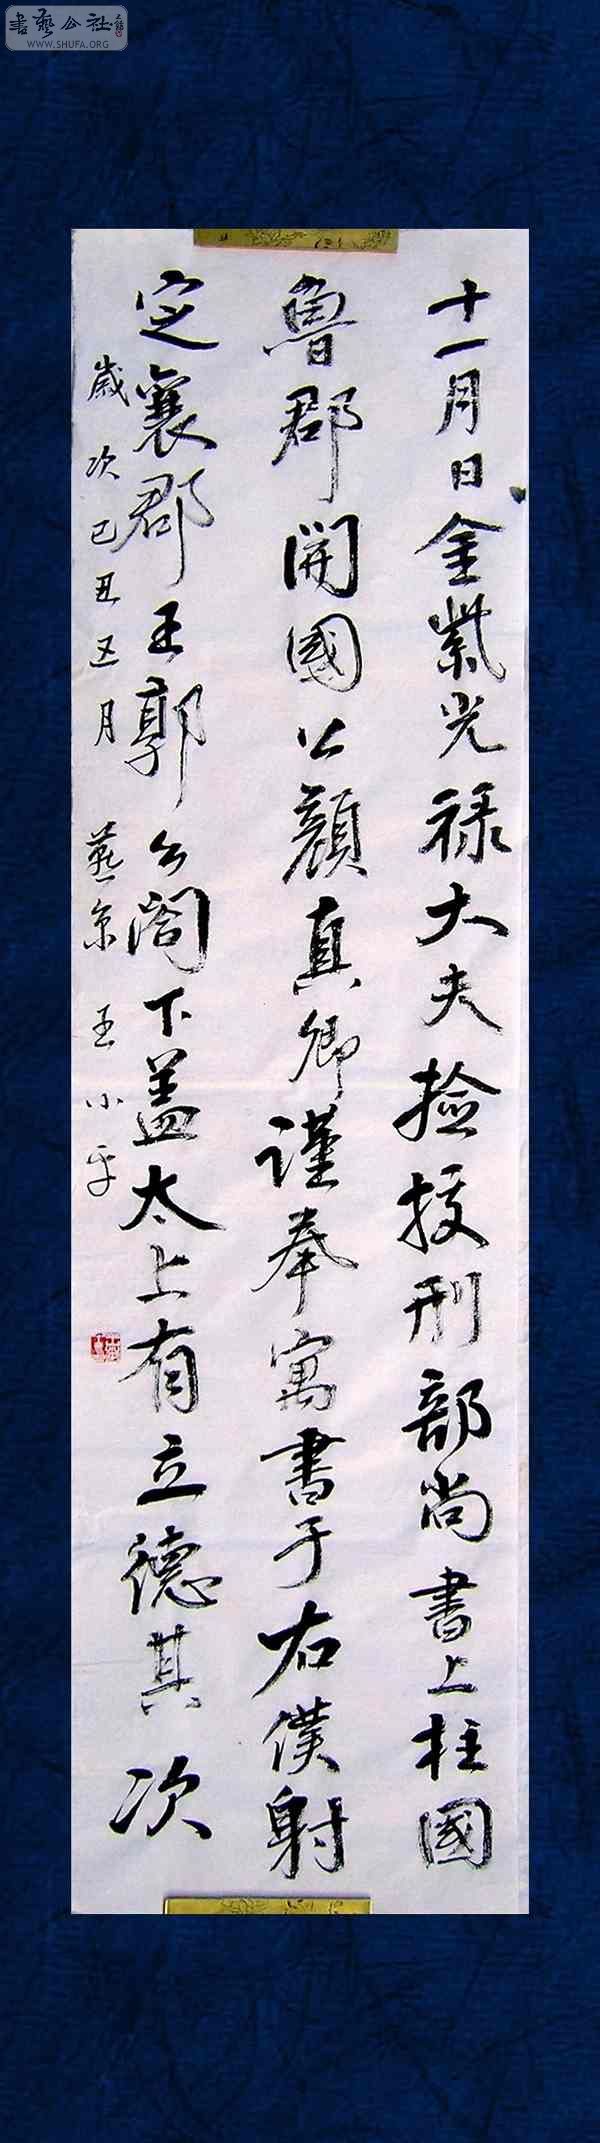 書藝公社
WWW.SHUFA.ORG
十一月日金紫光禄大夫撿挍刑部尚書上柱國
魯郡開國公顏真卿謹奉寓書于右僕射
定襄郡王郭公閤下蓋太上有立德其次
歲次己丑五月 燕京 王小平